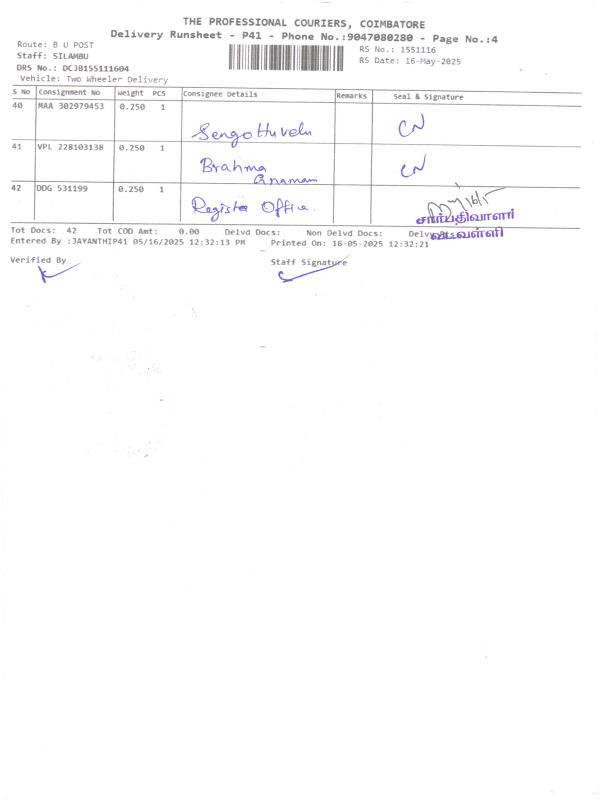 THE PROFESSIONAL COURIERS, COIMBATORE
Delivery Runsheet - P41 - Phone No.:9047080280 - Page No.:4
Route: B U POST
RS No.: 1551116
Staff: SILAMBU
RS Date: 16-May-2025
DRS No.: DCJB155111604
Vehicle: Two Wheeler Delivery
S No Consignment No Weight PCS Consignee Details Remarks Seal & Signature
40 MAA 302979453 0.250 1 Sengottuvelu CN
41 VPL 228103138 0.250 1 Brahma CN
Gnanam
42 DDG 531199 0.250 1 Register Office. 16/5
சார்பதிவாளர்
வடவள்ளி
Tot Docs: 42 Tot COD Amt: 0.00 Delvd Docs: Non Delvd Docs:
Entered By :JAYANTHIP41 05/16/2025 12:32:13 PM Printed On: 16-05-2025 12:32:21
Verified By
Staff Signature